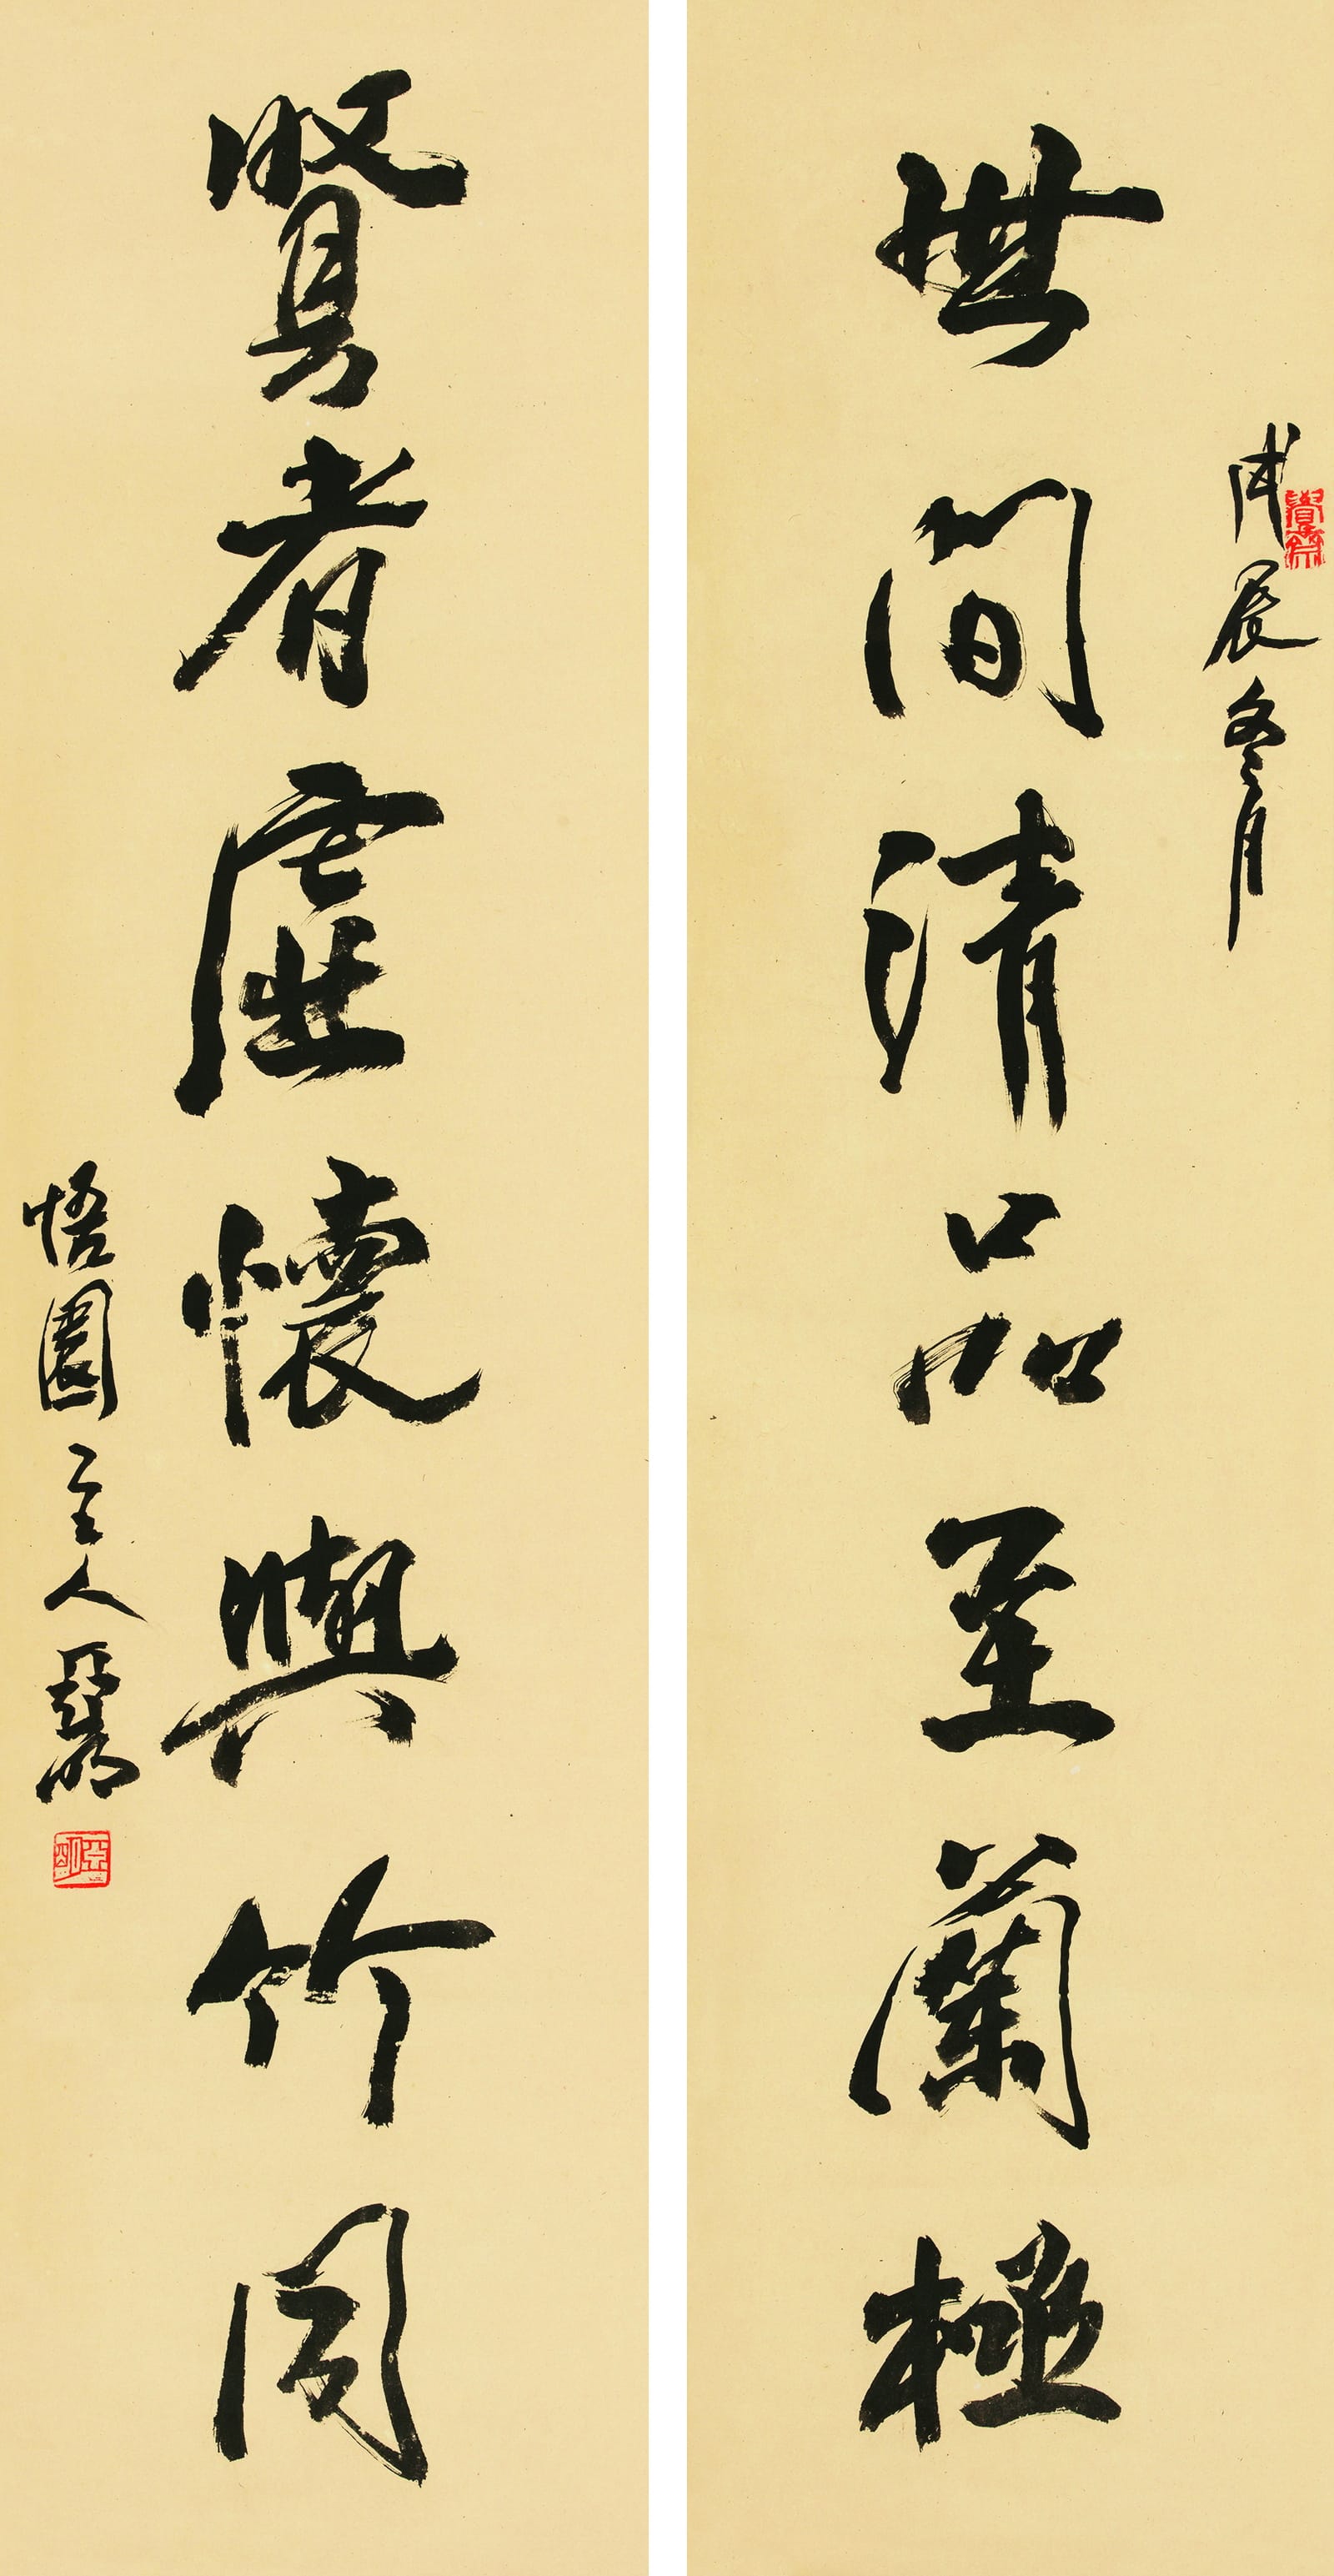 戊辰冬月
世間清品至蘭極
賢者虛懷與竹同
悟園主人